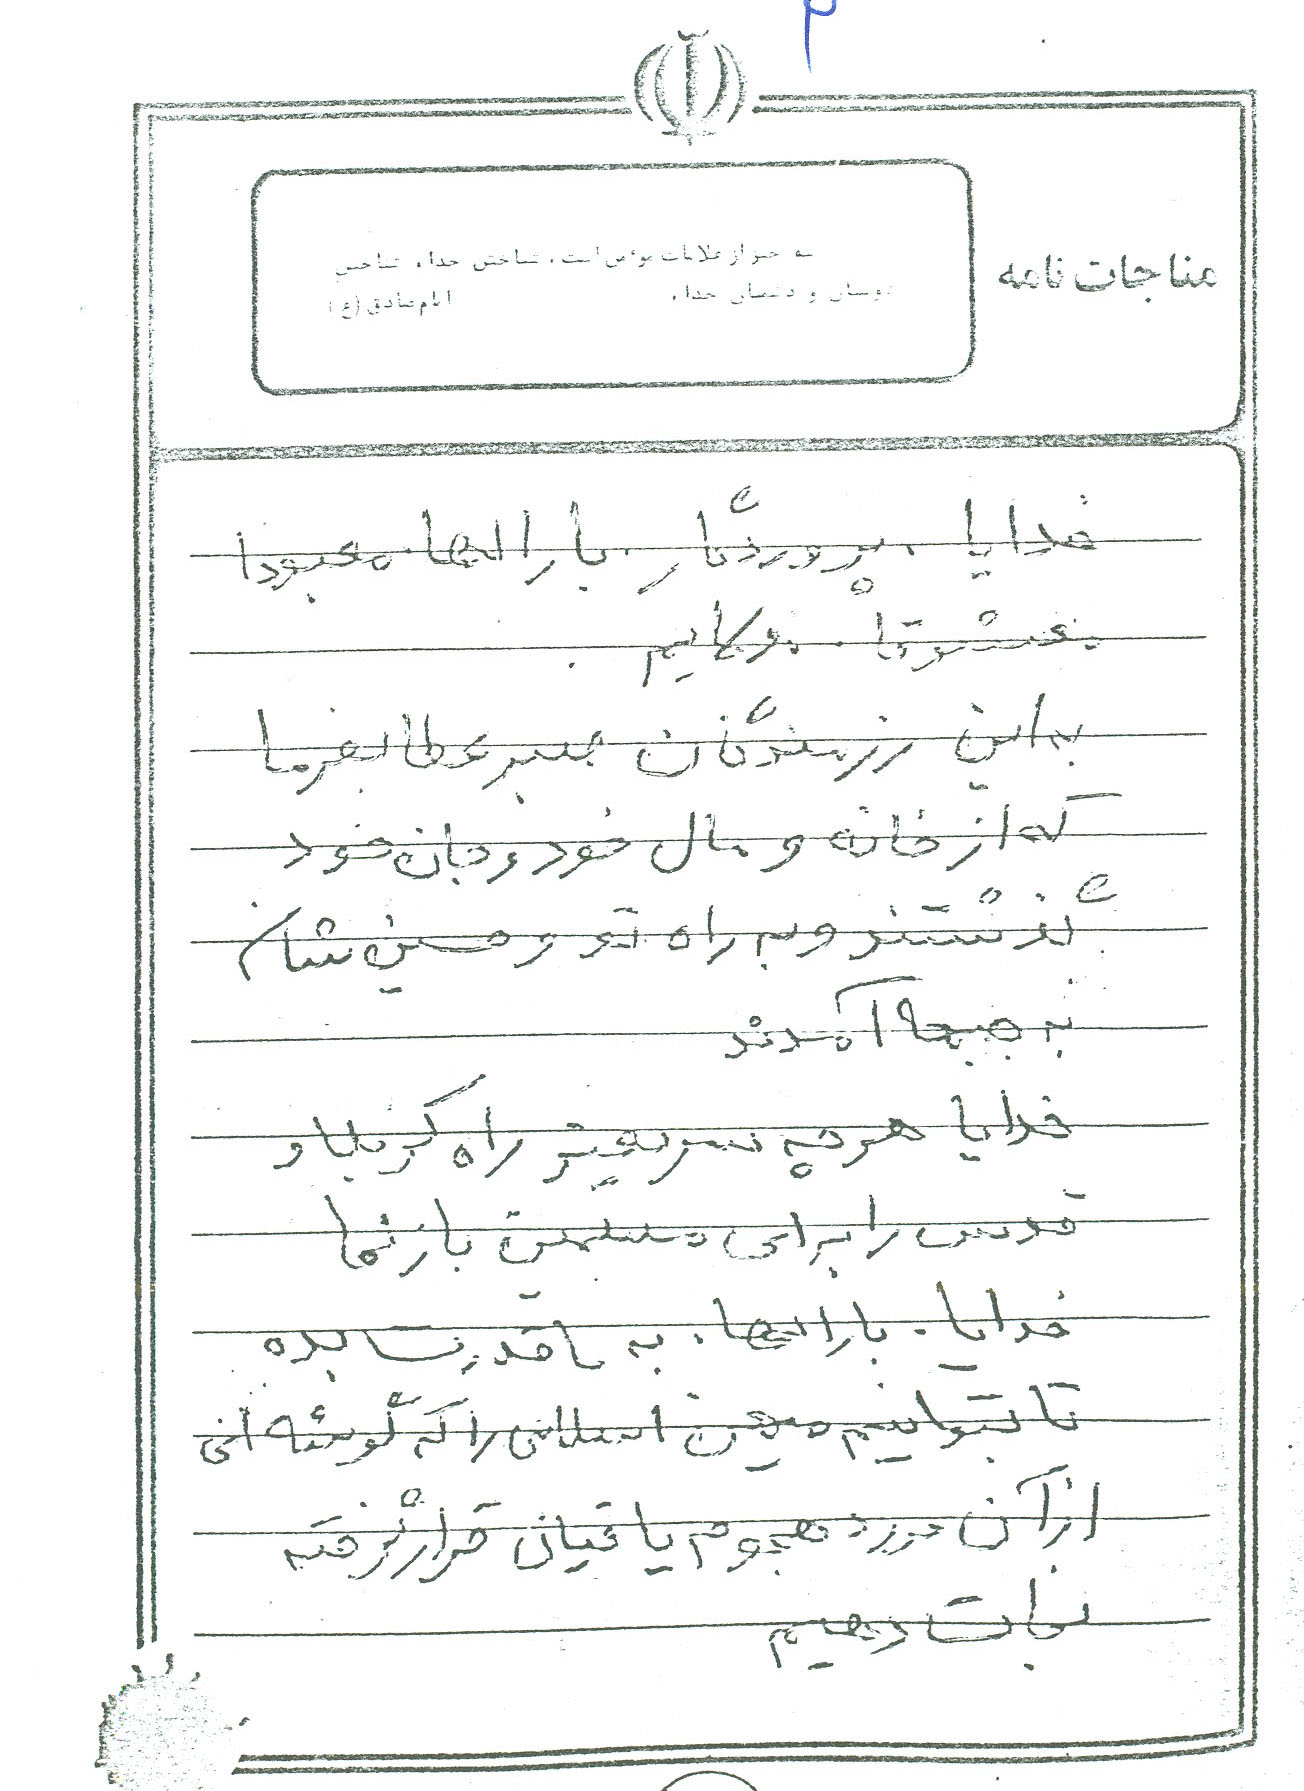 ۳
مناجات نامه
سه چیز از علامات مؤمن است، شناختن خدا، شناختن
دوستان و دشمنان خدا، امام صادق (ع)
خدایا . پروردگار . بارالها. معبودا
به این رزمندگان صبر عطا بفرما
که از خانه و مال خود و جان خود
گذشتند و به راه تو و حسین
به جبهه آمدند
خدایا هرچه سریعتر راه کربلا و
قدس را برای مسلمین باز نما
خدایا. بارالها. به ما قدرت بده
تا بتوانیم میهن اسلامی را که گوشه ای
از آن مورد هجوم یاغیان قرار گرفته
نجات دهیم